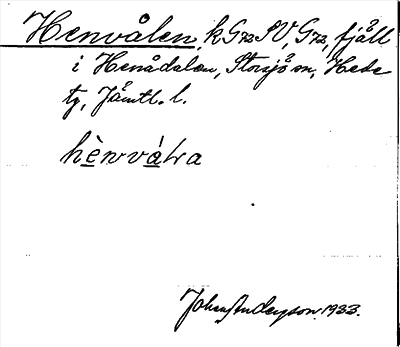 Henvålen, kGrzSV, Grz, fjäll
i Henådalen, Storsjö sn, Hede
tg, Jämtl. l.
hènvá̱ɫa
Johan Anderson. 1933.